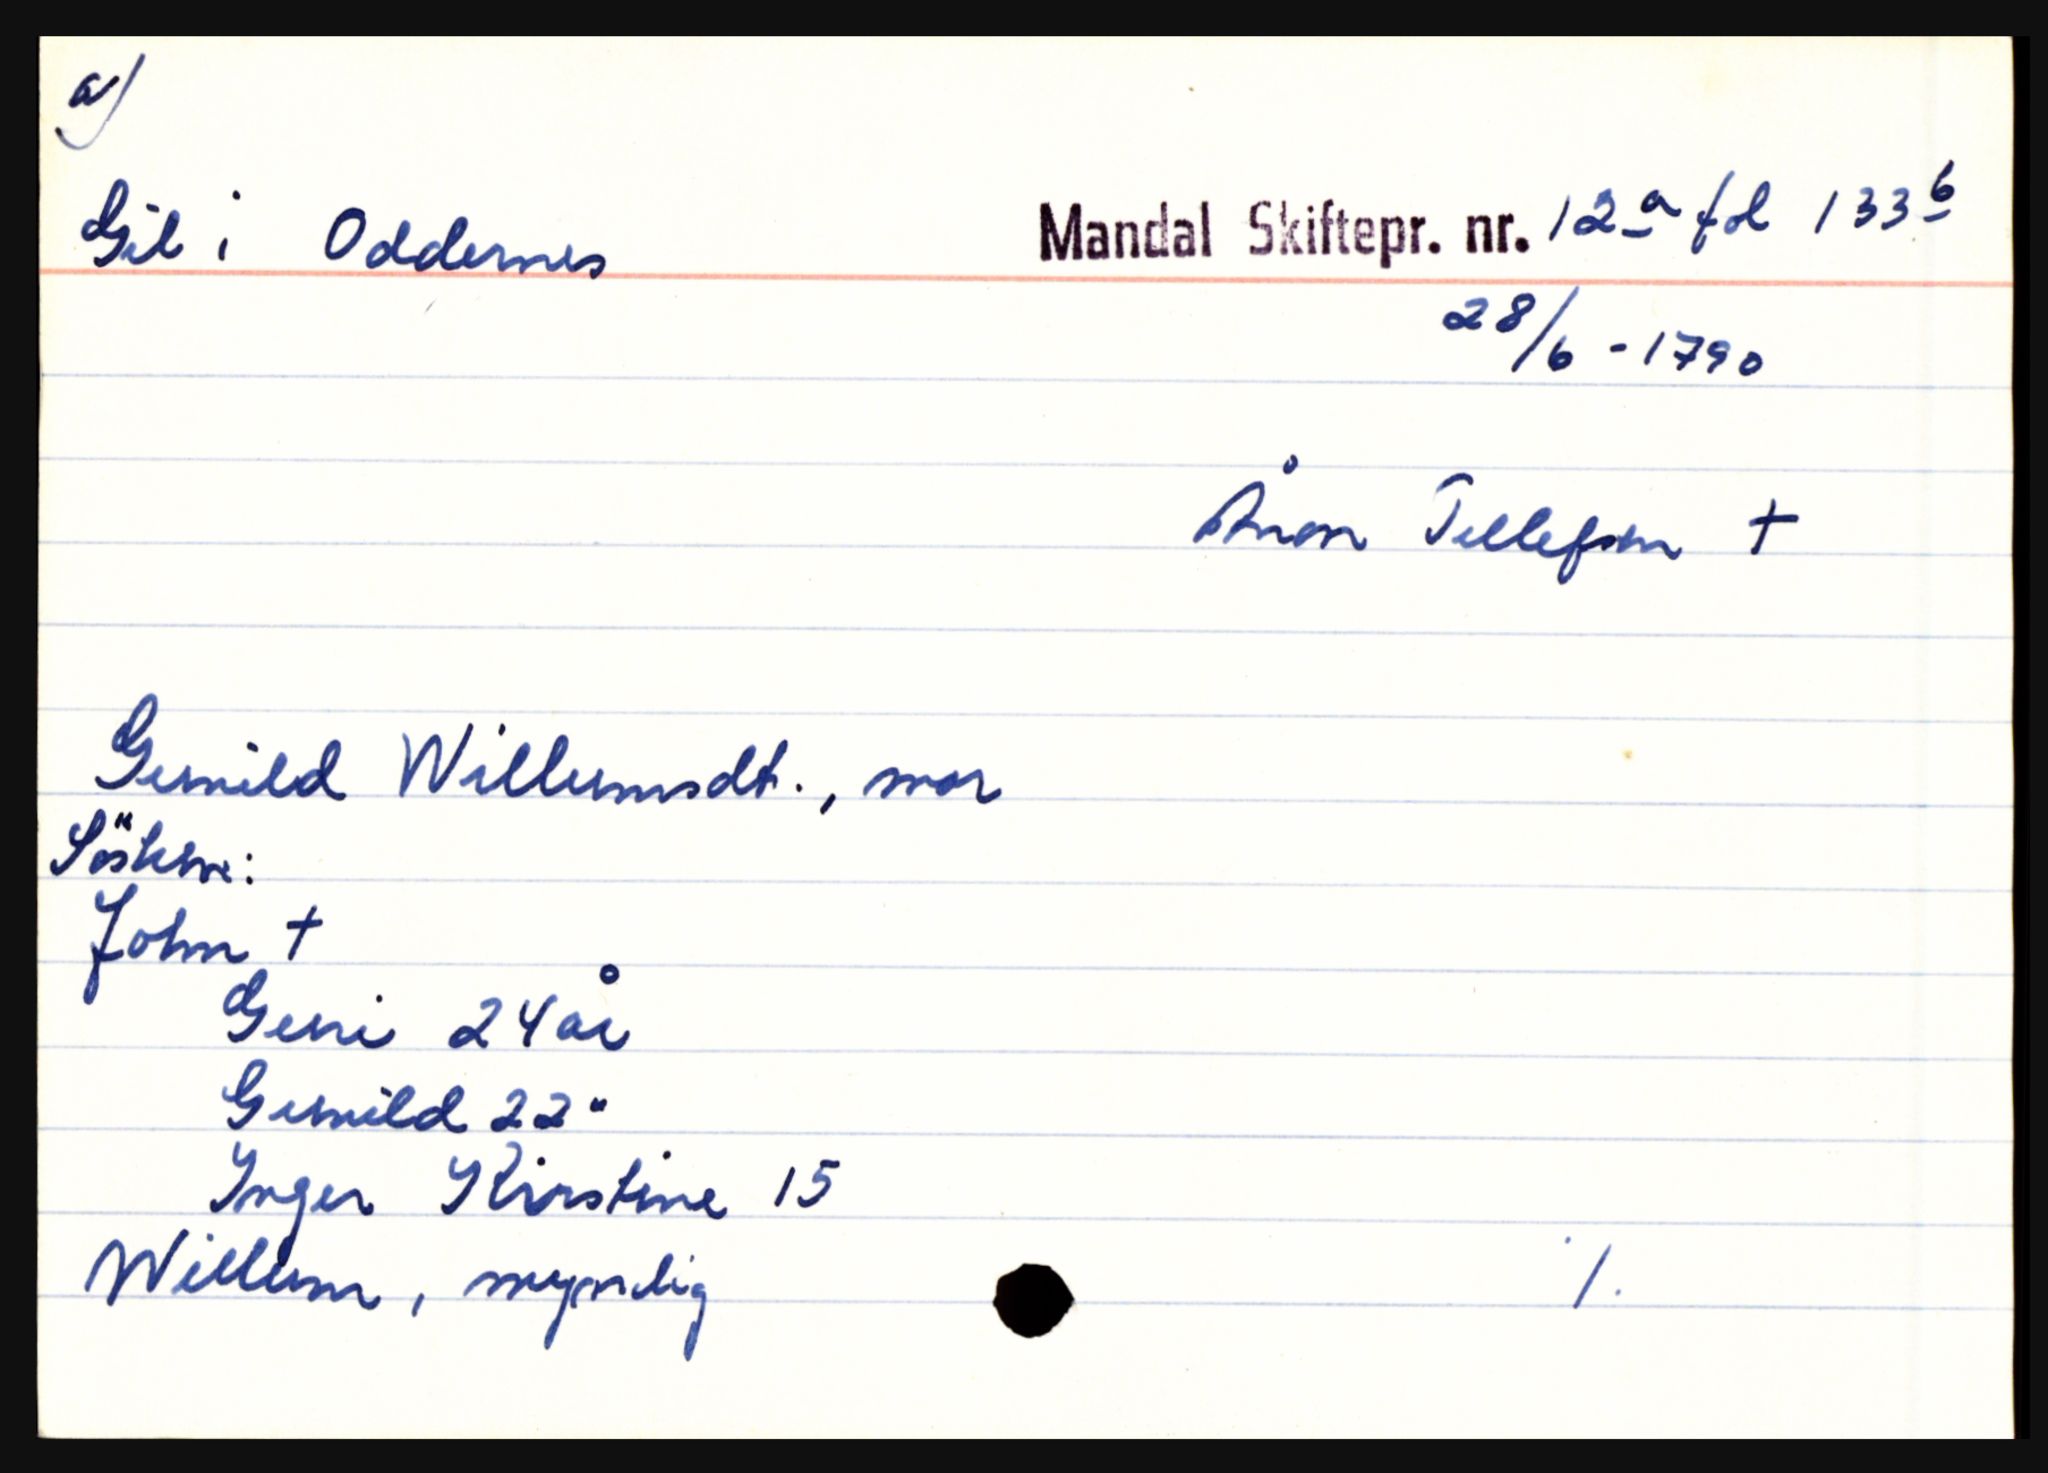 a)
Gil i Oddernes Mandal Skiftepr. nr. 12a fol 133b
28/6 - 1790
Ånon Tellefsen +
Gunild Willumsdt., mor
Söskene:
John +
Guri 24 år
Gunild 22 "
Inger Kirstine 15
Willum, myndig
./.